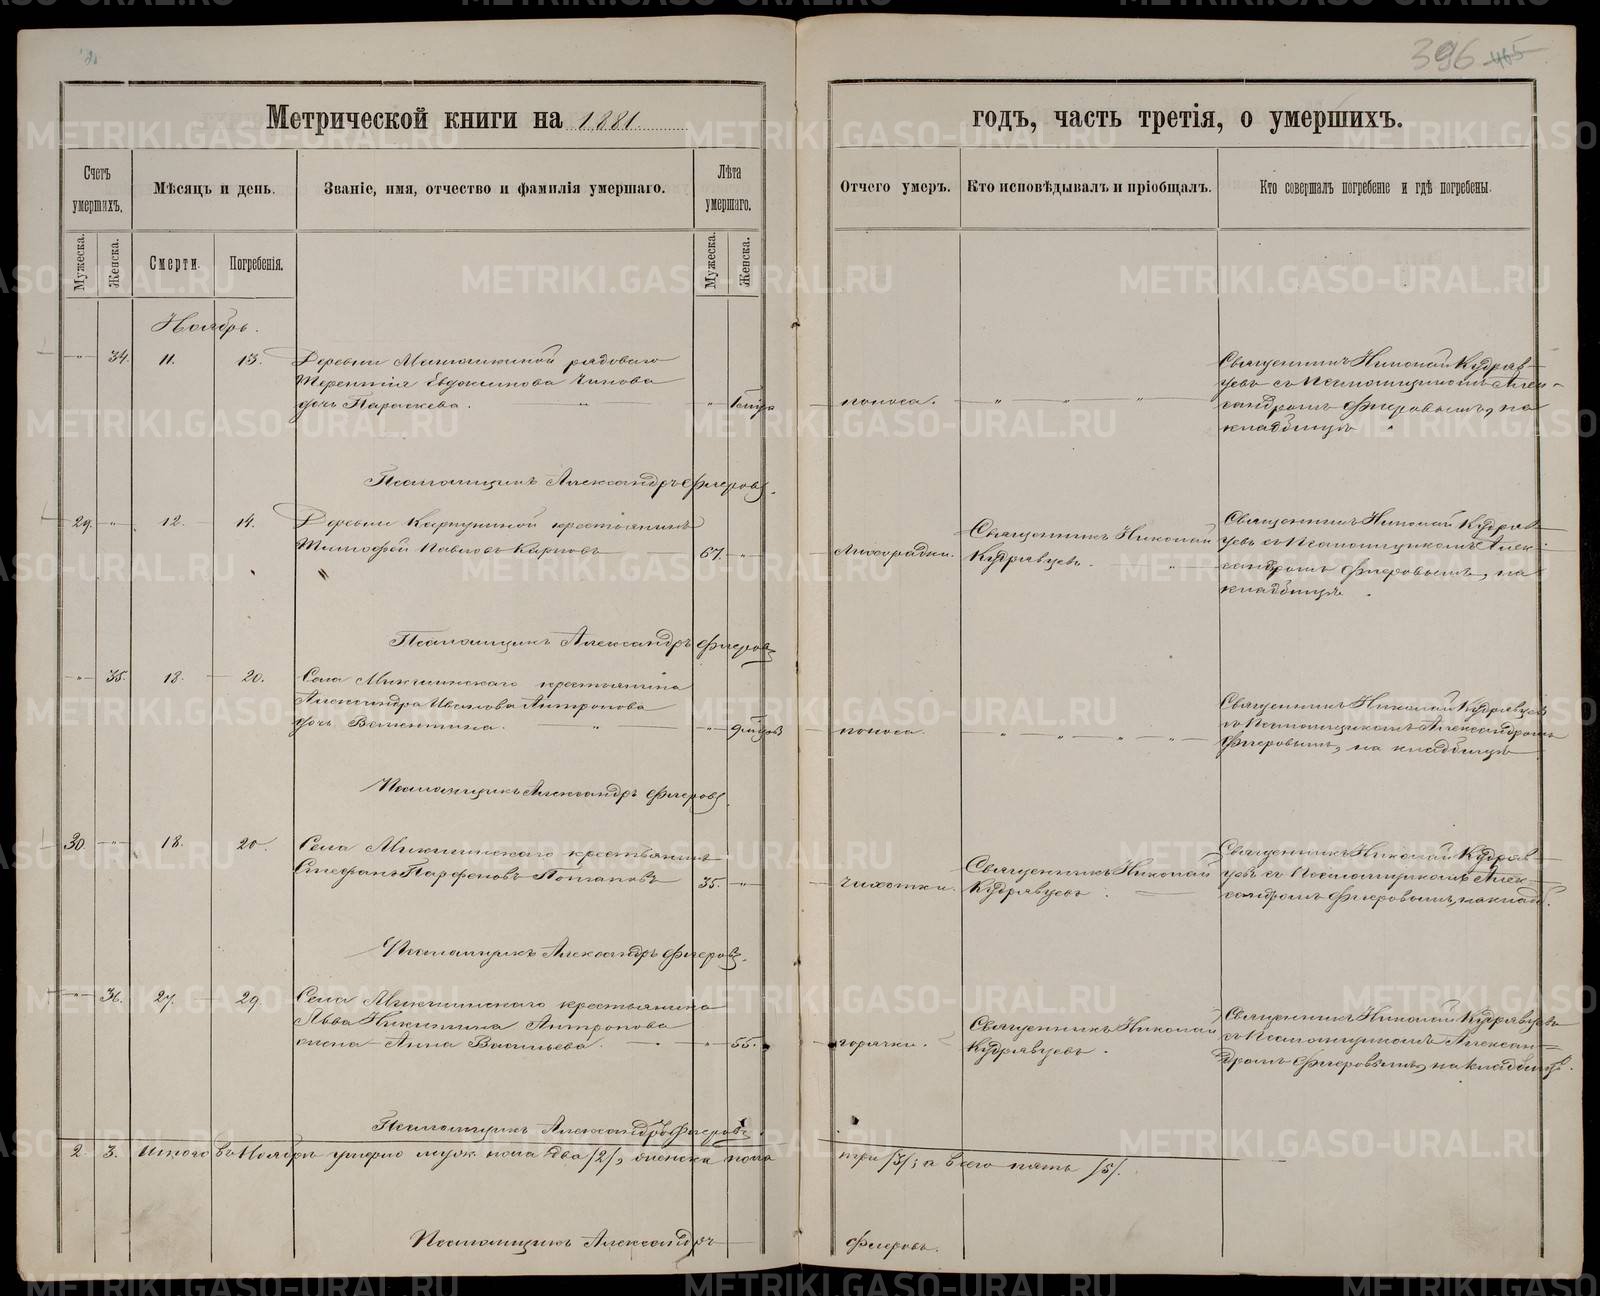 396 465
Метрической книги на 1881
годъ, часть третія, о умершихъ.
Счетъ умершихъ.
Мѣсяцъ и день.
Званіе, имя, отчество и фамилія умершаго.
Лѣта умершаго.
Отчего умеръ.
Кто исповѣдывалъ и пріобщалъ.
Кто совершалъ погребеніе и гдѣ погребены.
Мужеска.
Женска.
Смерти.
Погребенія.
Мужеска.
Женска.
Ноябрь.
34. 11. 13.
Деревни рядоваго
Терентія Евдокимова
дочь Параскева.
поноса.
Священникъ Николай Кудряв-
цевъ съ Псаломщикомъ Алек-
сандромъ Флеровымъ, на
кладбищѣ
Псаломщикъ Александръ Флеровъ.
29. 12. 14.
Деревни крестьянинъ
Тимофей Павловъ Карповъ
67.
лихорадки.
Священникъ Николай
Кудрявцевъ.
Священникъ Николай Кудряв-
цевъ съ Псаломщикомъ Алек-
сандромъ Флеровымъ, на
кладбищѣ.
Псаломщикъ Александръ Флеровъ
35. 18. 20.
Села крестьянина
Александра Иванова Антропова
дочь Валентина.
поноса.
Священникъ Николай Кудрявцевъ
съ Псаломщикомъ Александромъ
Флеровымъ, на кладбищѣ
Псаломщикъ Александръ Флеровъ.
30. 18. 20.
Села крестьянинъ
Стефанъ Парфеновъ Потаповъ
35.
чахотки.
Священникъ Николай
Кудрявцевъ.
Священникъ Николай Кудряв-
цевъ съ Псаломщикомъ Алек-
сандромъ Флеровымъ, на кладб.
Псаломщикъ Александръ Флеровъ.
36. 27. 29.
Села крестьянина
Льва Никитина Антропова
жена Анна Васильева.
55.
горячки.
Священникъ Николай
Кудрявцевъ.
Священникъ Николай Кудрявцевъ
съ Псаломщикомъ Алексан-
дромъ Флеровымъ, на кладбищѣ.
Псаломщикъ Александръ Флеровъ.
2. 3. Итого въ Ноябрѣ умерло муж. пола два /2/, женска пола
три /3/; а всего пять /5/.
Псаломщикъ Александръ
Флеровъ.
METRIKI.GASO-URAL.RU